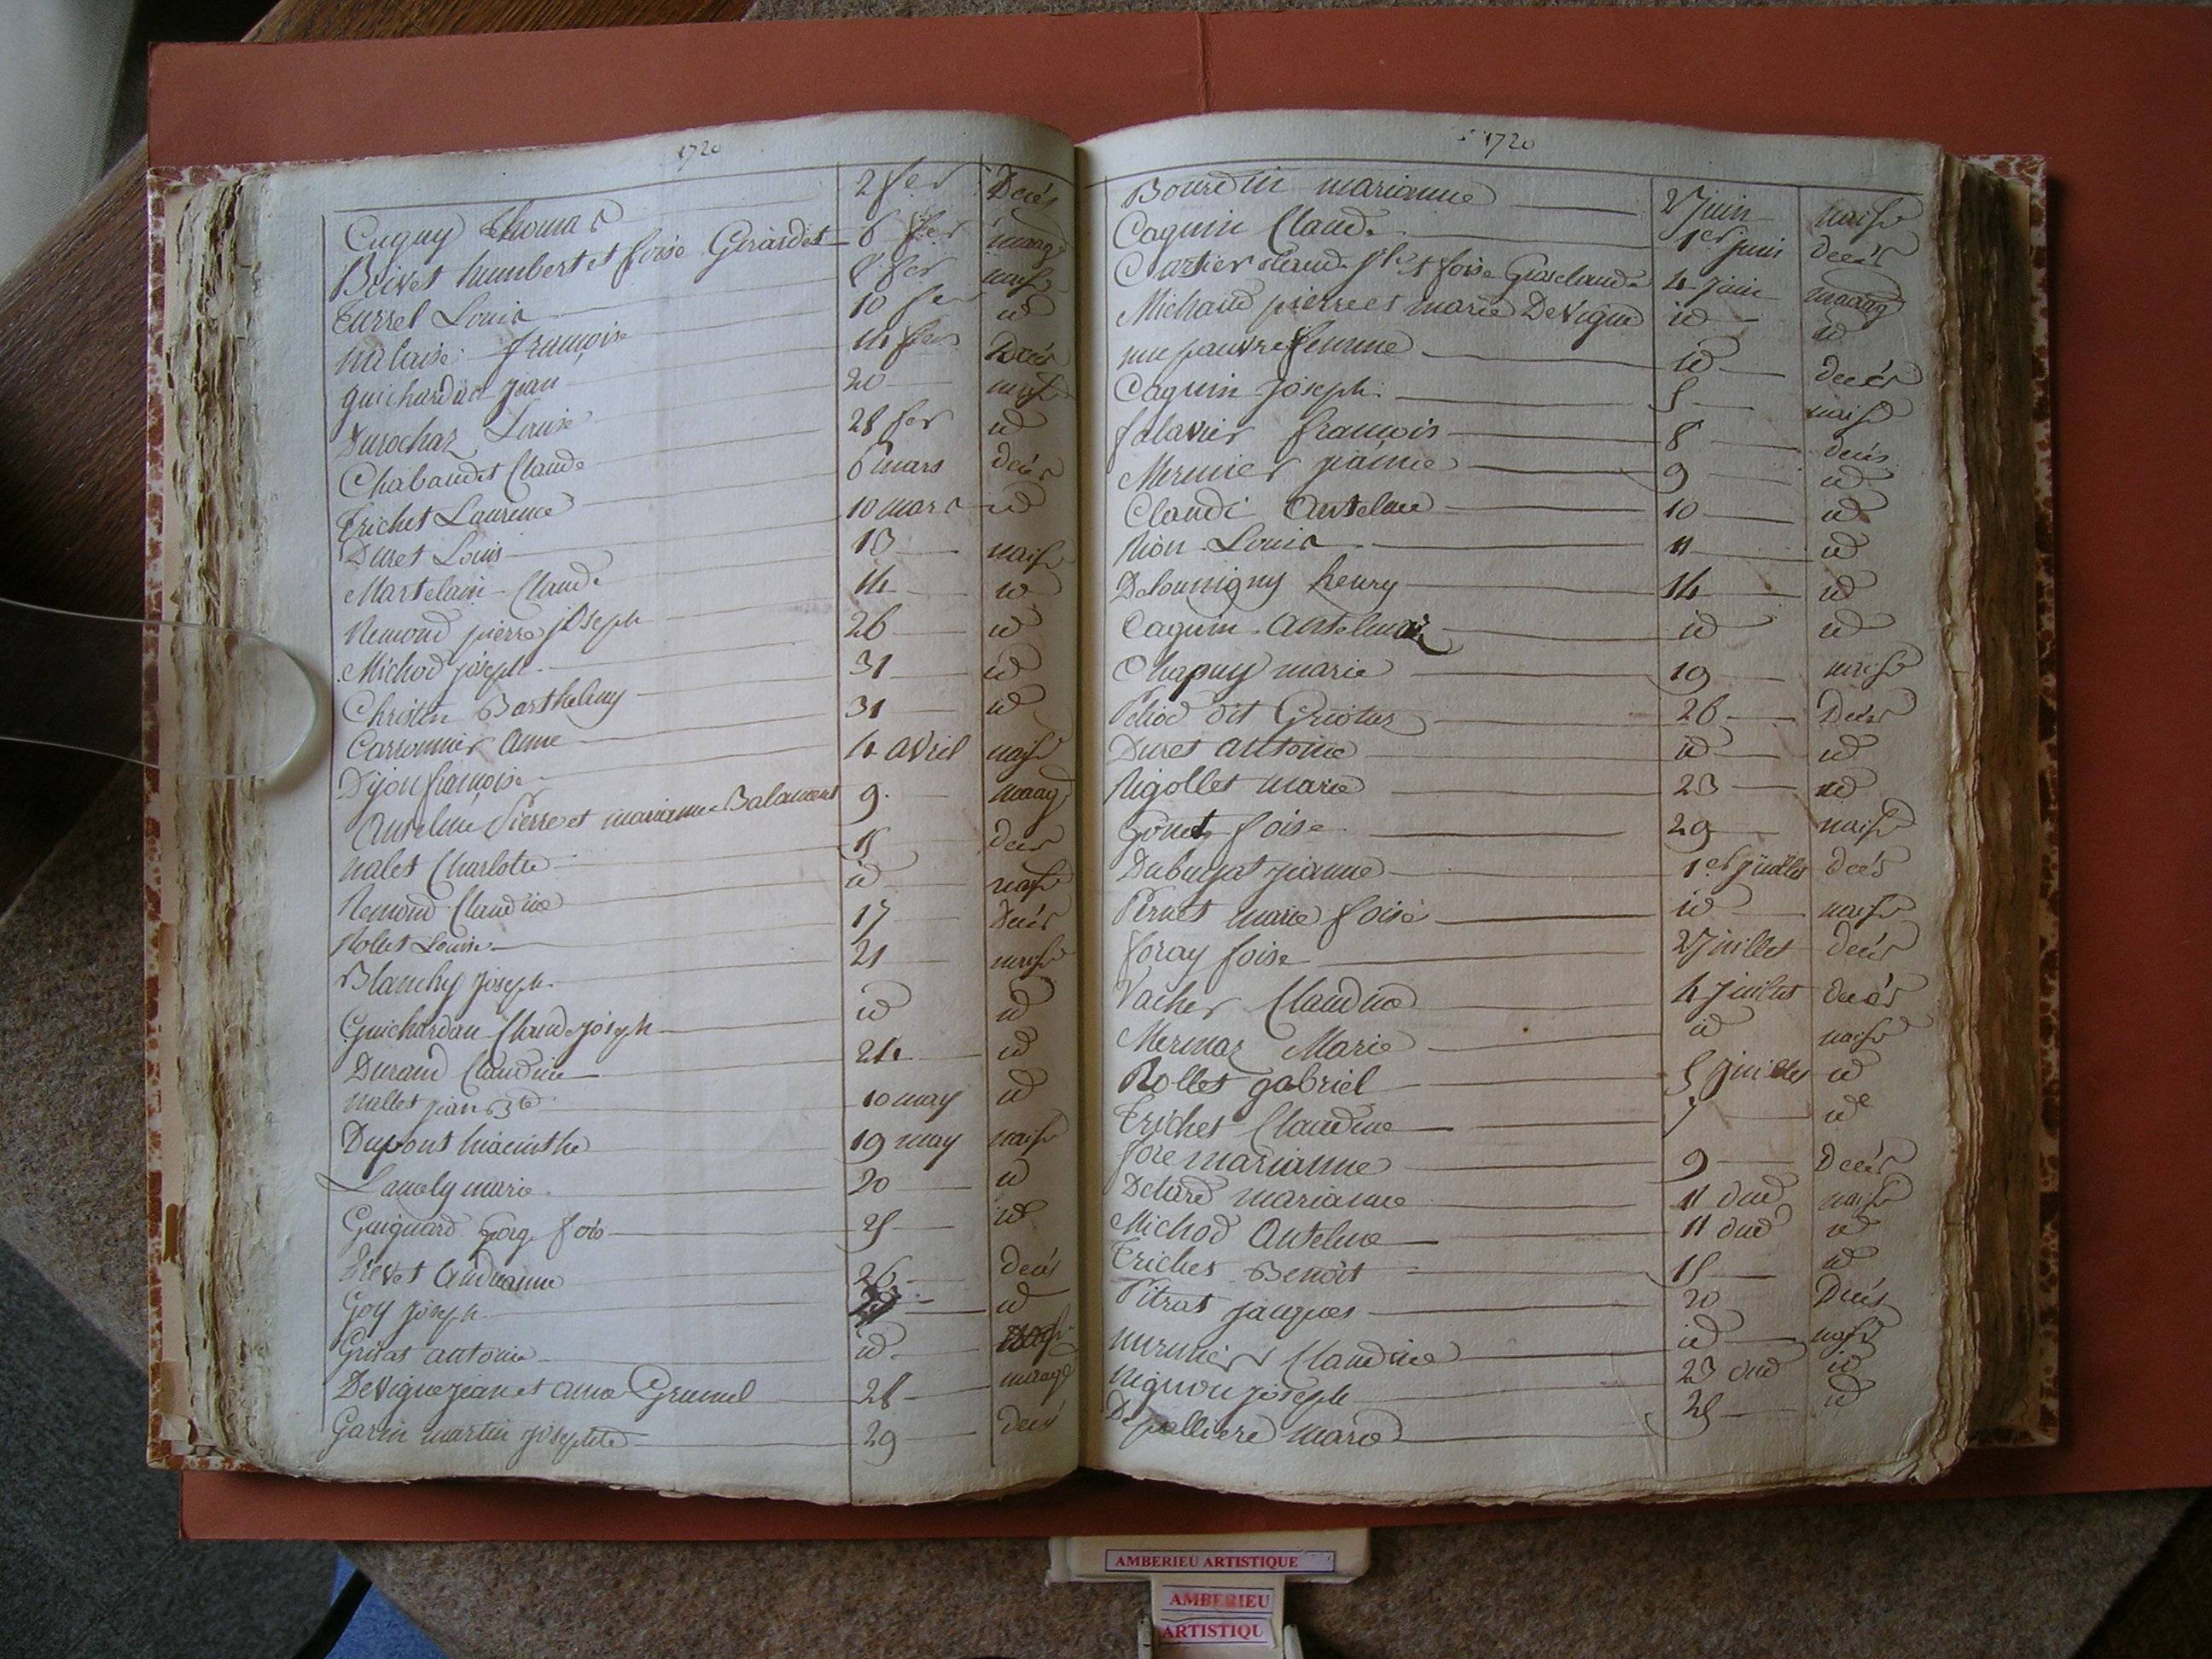 1720
Cuguy Thomas 2 fer Decés
Boivet humbert et foise Girardet 6 fer maage
Turrel Louis 8 fer naise
malaise françoise 10 fer id
guichardan jean 14 fer Décés
Durochaz Louise 20 naise
Chabaudet Claude 28 fer id
Trichet Laurence 6 mars decés
Duret Louis 10 mars id
Martelain Claude 13 naise
Remond pierre joseph 14 id
Michod joseph 26 id
Christin Barthelemy 31 id
Carronnier anne 31 id
Dijon françoise 4 avril naise
Anselme Pierre et marianne Balamont 9 maage
nalet Charlotte 15 decés
Remond Claudine id naise
Rolet Louise 17 Décés
Blanchy joseph 21 naise
Guichardan Claude joseph id id
Durand Claudine 24 id
nallet jean Bte 10 may id
Dupont hiacinthe 19 may naise
Lamely marie 20 id
Guignard gorge fois 25 id
Andreanne 26 decés
Goy joseph id
Grisat antoine id
Devigne jean et anne Grumel 28 mirage
Garin martin josephte 29 decés
1720
Bourdin marianne 2 Juin naise
Caguin Claude 1er juin decés
Cartier Claude et foise Groselaude 4 juin maage
Michaud pierre et marie Devigne id id
une pauvre femme id decés
Caguin joseph 5 naise
falavier françois 8 decés
Mermier jeanne 9 id
Claudi Antelme 10 id
Nion Louis 11 id
Delouvigny henry 14 id
Caguin Antelme id id
Chapuy marie 19 naise
Peliod dit Griotus 26 Decés
Duret antoine id id
Rigollet marie 23 id
Gonet foise 29 naise
Dubuyat jeanne 1er juillet decés
Pernet marie foise id naise
foray foise 2 Juillet decés
Vacher Claudine 4 Juillet decés
Mermaz Marie id naise
Rollet gabriel 5 Juillet id
Trichet Claudine 7 id
fore marianne 9 Decés
Detard marianne 11 dud naise
Michod Antelme 11 dud id
Trichet Benoit 15 id
Pitrat jacques 20 Decés
murmier Claudine id naise
mignon joseph 23 dud id
Depalliere marie 25 id
AMBERIEU ARTISTIQUE
AMBERIEU
ARTISTIQU